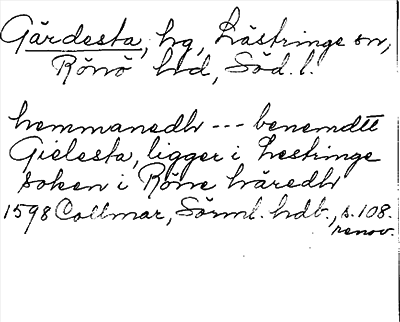 Gärdesta, hg, Lästringe sn,
Rönö hd, Söd. l.
hemmanedh --- benemdtt
Gielesta, ligger i Lestringe
soken i Röne häredh
1598 Collmar, Sörml. hdb., s. 108.
renov.